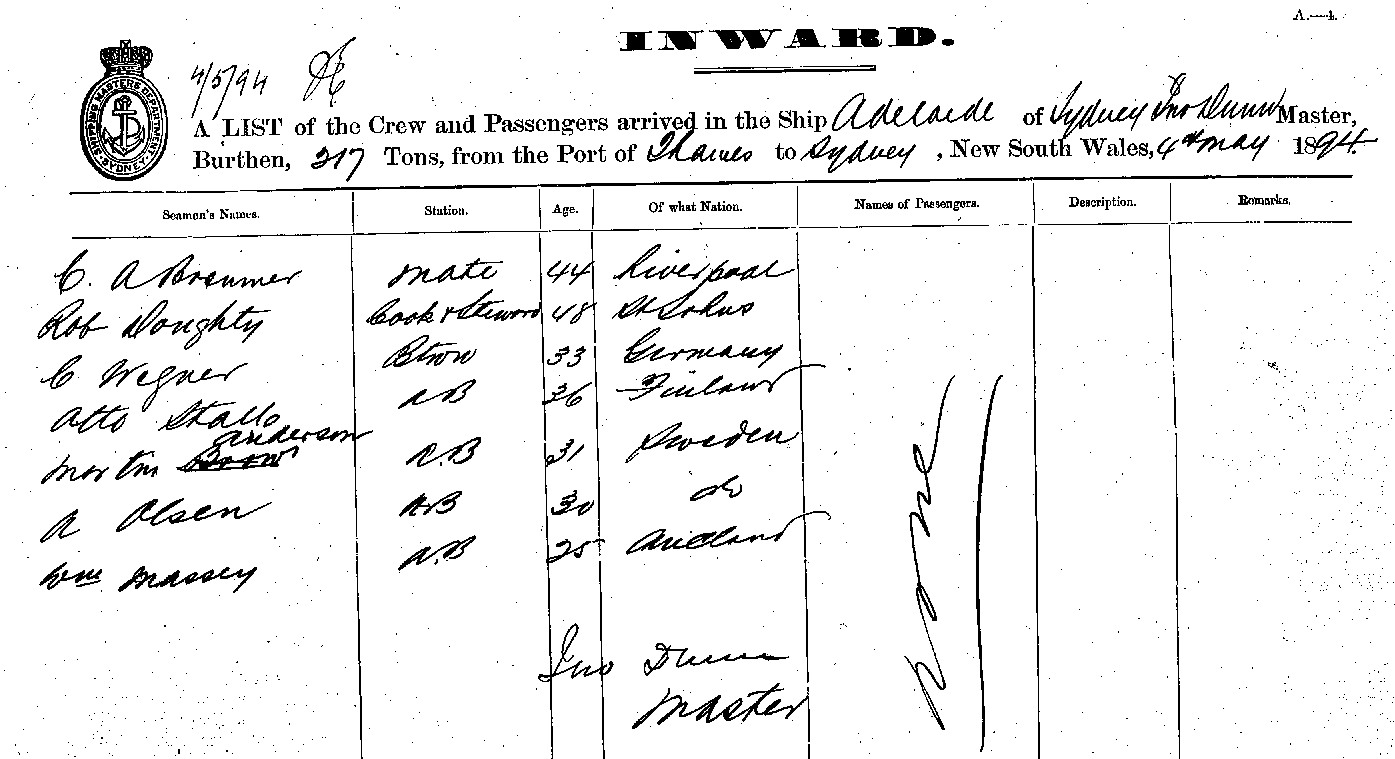 A.—4.
INWARD.
SHIPPING MASTERS DEPARTMENT SYDNEY
4/5/94
A LIST of the Crew and Passengers arrived in the Ship Adelaide of Sydney Jno Dunn Master,
Burthen, 317 Tons, from the Port of Thames to Sydney, New South Wales, 4th May 1894.
Seamen's Names. Station. Age. Of what Nation. Names of Passengers. Description. Remarks.
C. A mate 44 Liverpool
Rob Doughty Cook & Steward 48 St Johns
C Wegner Btwn 33 Germany
Otto AB 36 Finland
Anderson
Martin Brown A.B 31 Sweden
A Olsen AB 30 do
Wm Massey A.B 25
None
Jno Dunn
Master